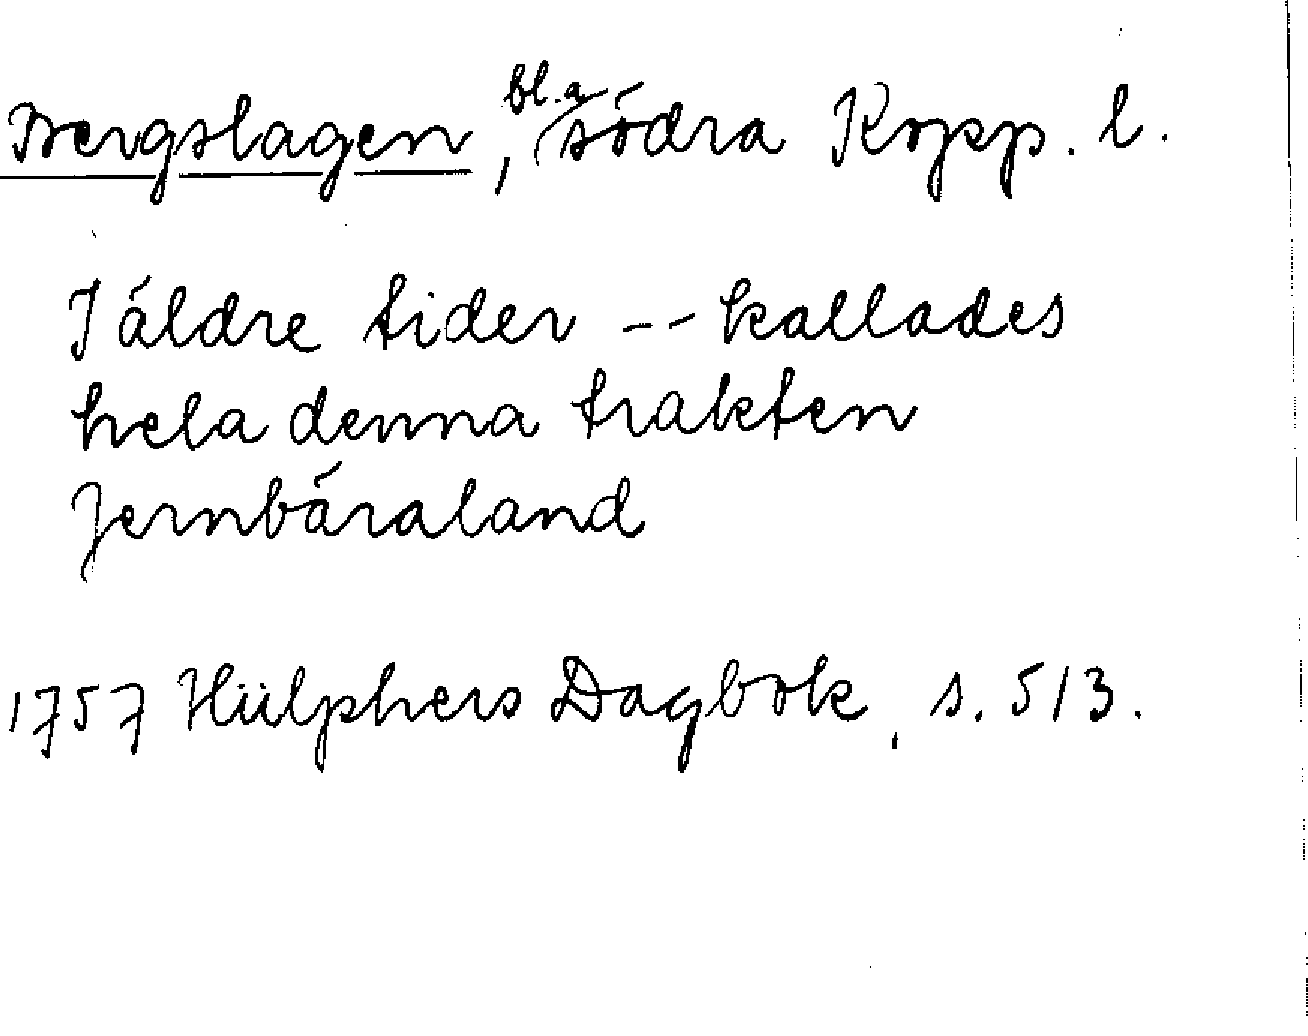 Bergslagen, bl.a södra Kopp. l.
I äldre tider -- kallades
hela denna trakten
Jernbäraland
1757 Hülphers Dagbok, s. 513.